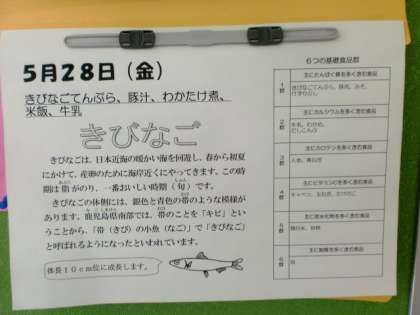 5月28日（金）
きびなごてんぷら、豚汁、わかたけ煮、
米飯、牛乳
きびなご
きびなごは、日本近海の暖かい海を回遊し、春から初夏
にかけて、産卵のために海岸近くにやってきます。この時
期は脂がのり、一番おいしい時期（旬）です。
きびなごの体側には、銀色と青色の帯のような模様
があります。鹿児島県南部では、帯のことを「キビ」とい
うことから、「帯（きび）の小魚（なご）」で「きびなご」
と呼ばれるようになったといわれています。
体長10cm位に成長します。
6つの基礎食品群
主にたんぱく質を多く含む食品
1群
きびなごてんぷら、豚肉、みそ、
主にカルシウムを多く含む食品
2群
牛乳、わかめ、
主にカロテンを多く含む食品
3群
人参、
主にビタミンCを多く含む食品
4群
主に炭水化物を多く含む食品
5群
主に脂質を多く含む食品
6群
油